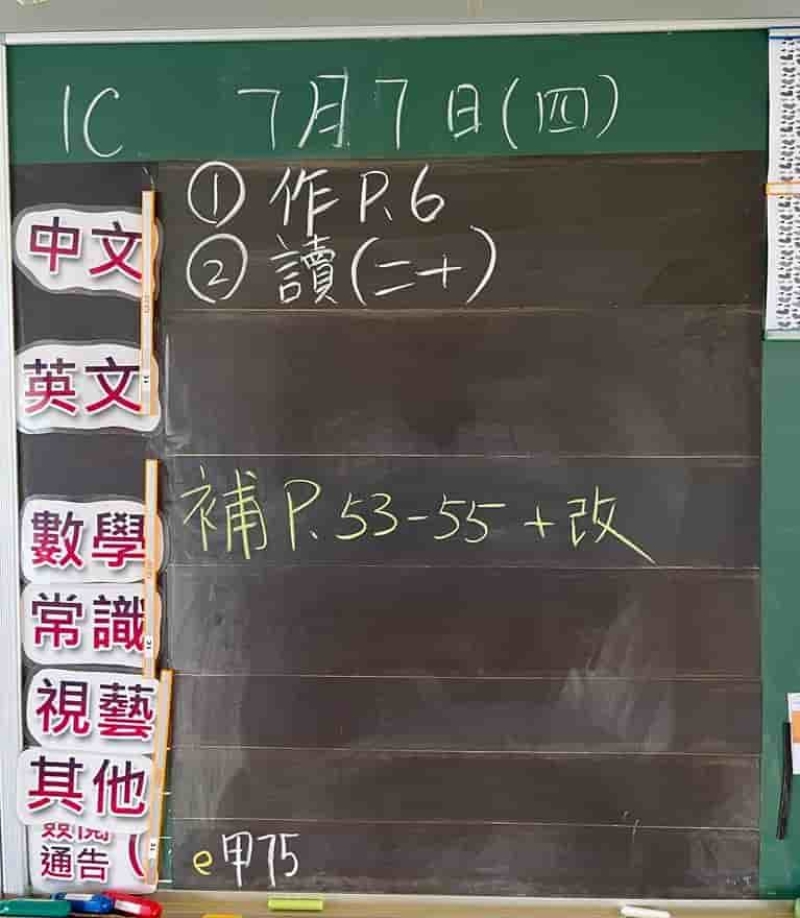 1C 7月7日(四)
中文 ① 作 P.6
② 讀(二十)
英文
數學 補 P.53-55 + 改
常識
視藝
其他
簽閱
通告( e甲75